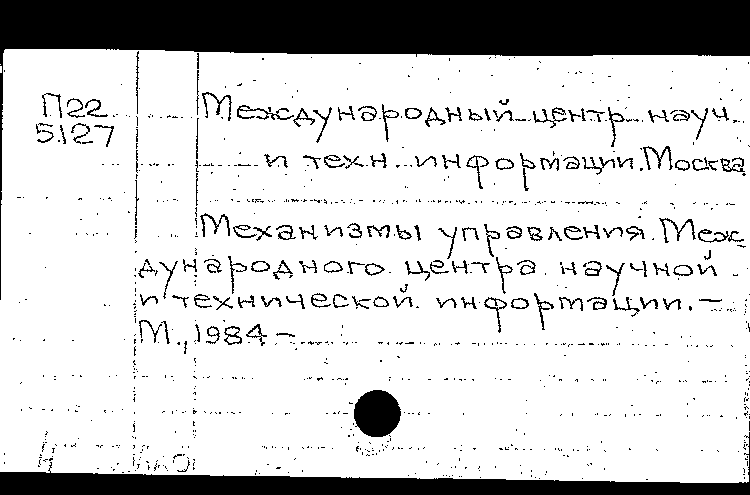 П22
5127
Международный центр науч.
и техн. информации. Москва
Механизмы управления Меж-
дународного центра научной
и технической информации. –
М., 1984 –